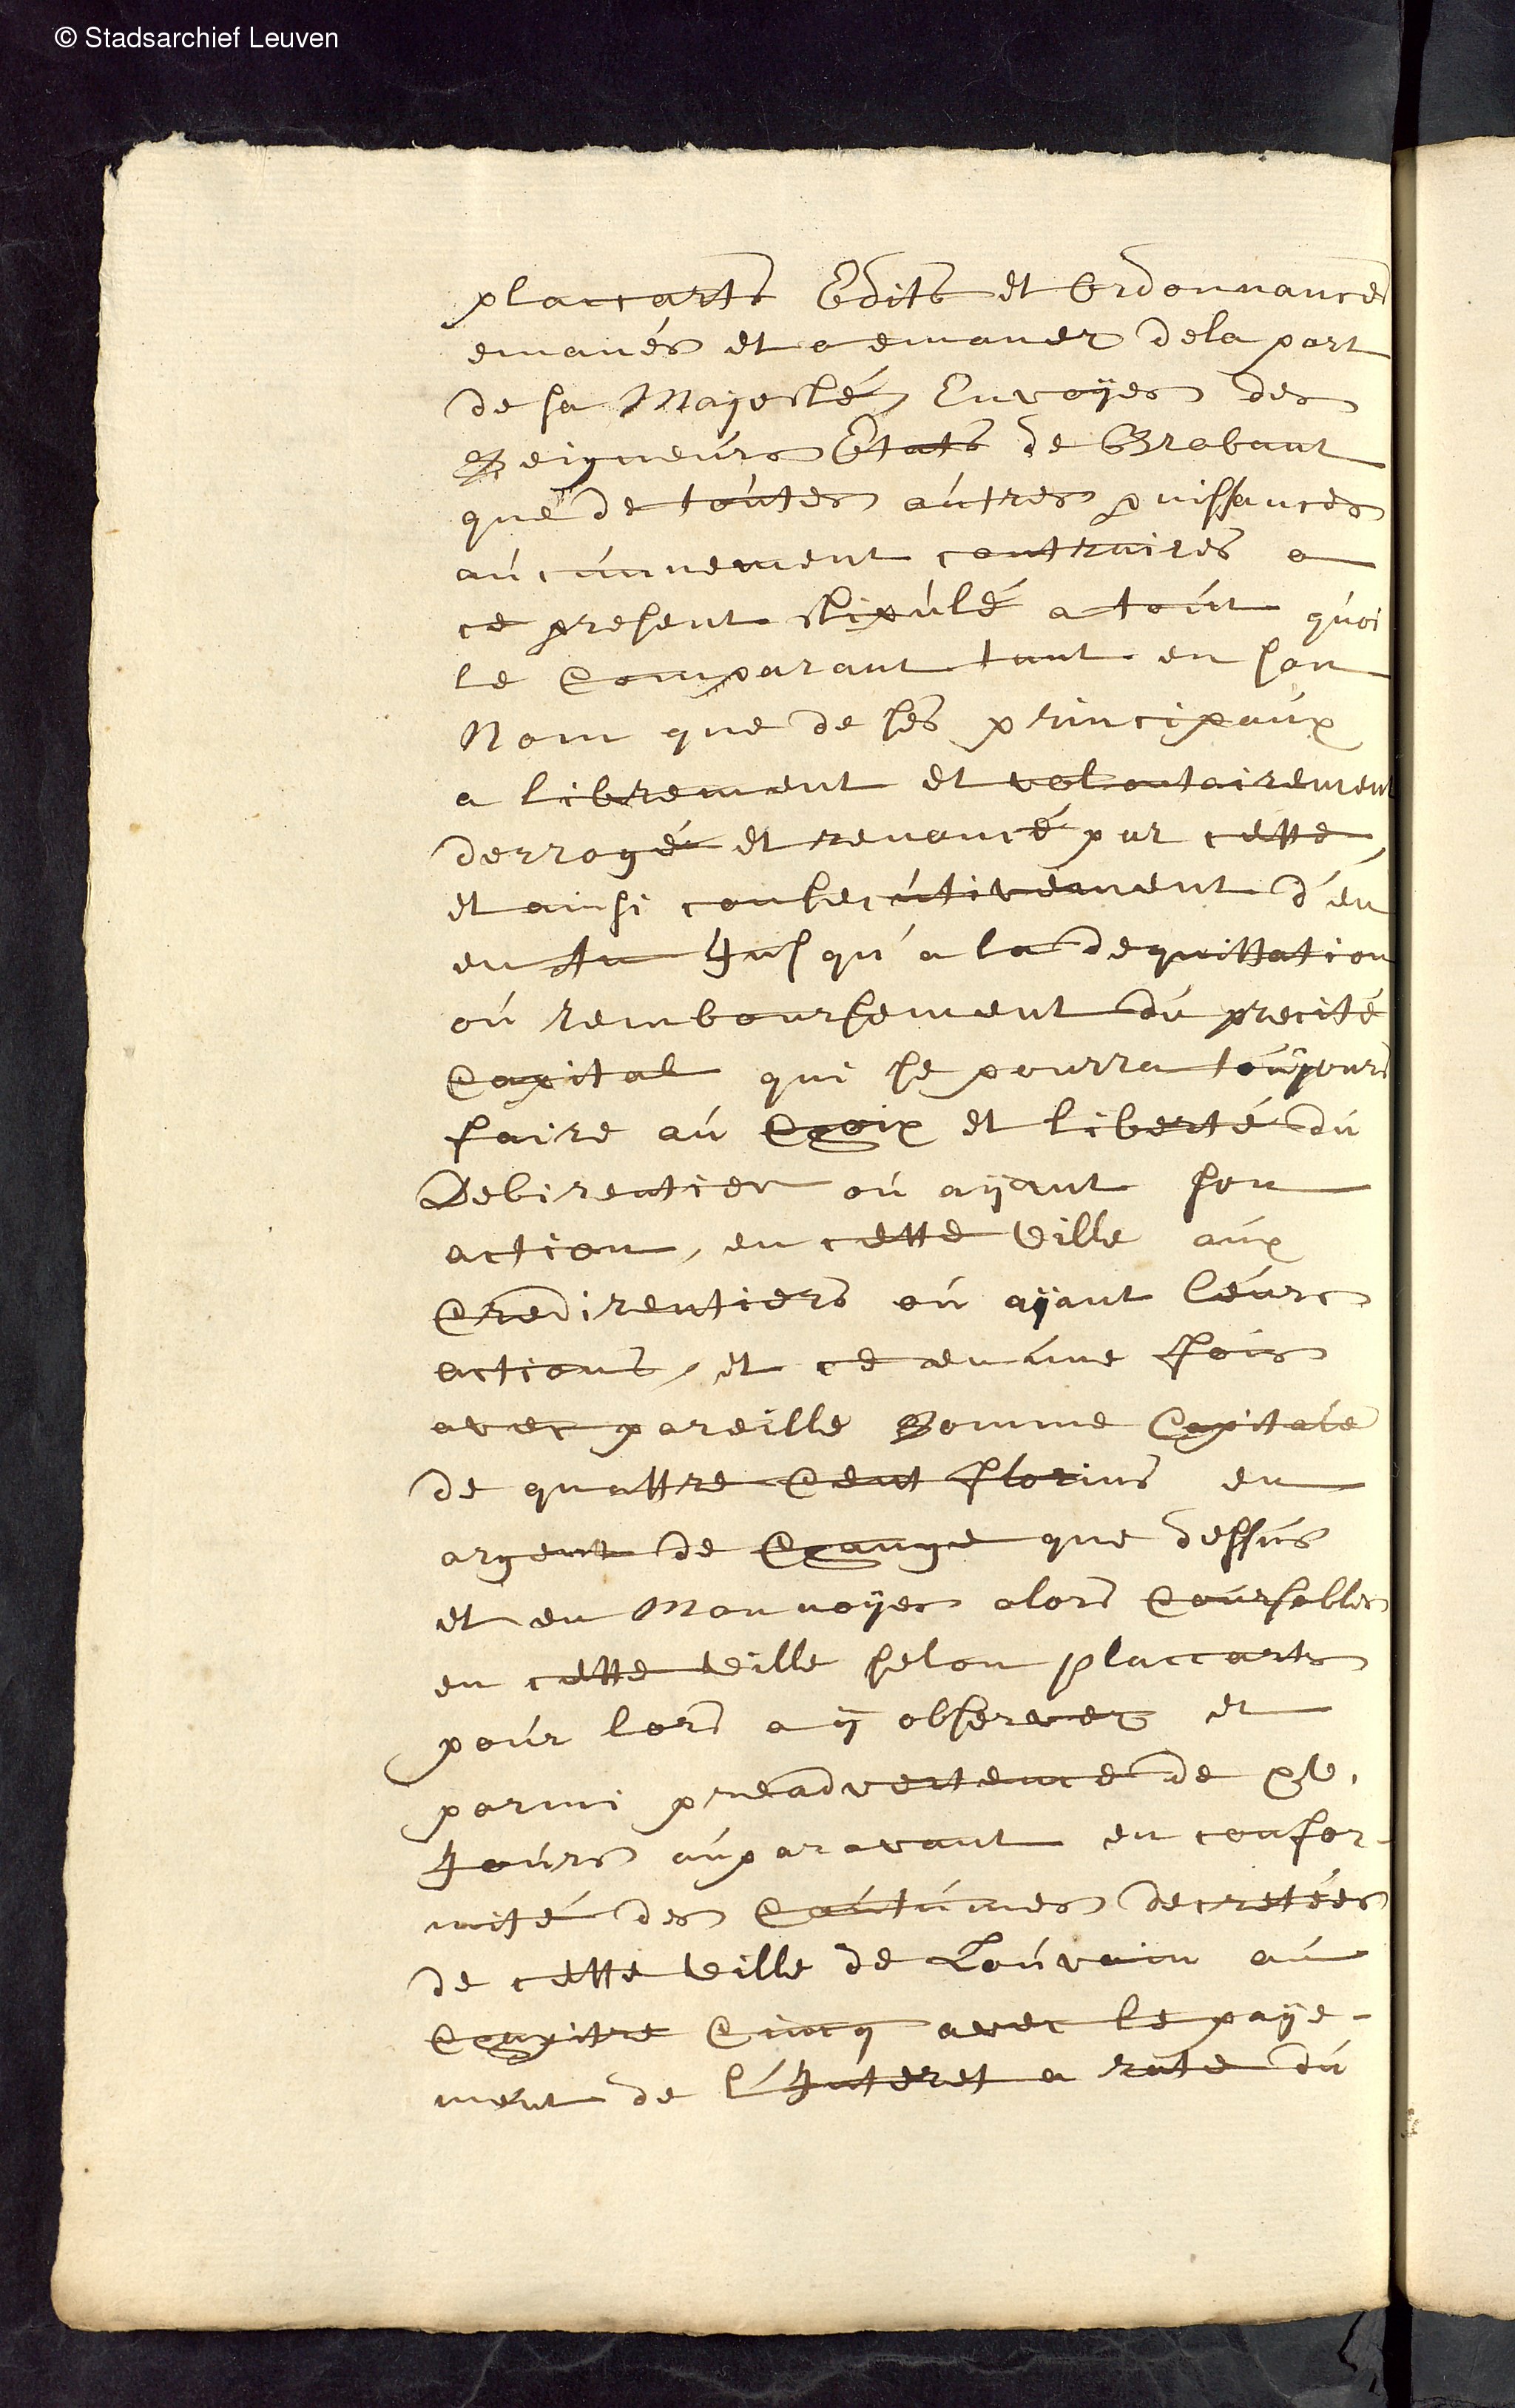 © Stadsarchief Leuven
placcarts Edits et Ordonnances
emanés et a emaner dela part
de sa Majesté, Envoÿes des
Seigneurs Etats de Brabant
que de toutes autres puissances
aucunnement contraires a
ce present stipulé a tout quoi
le Comparant tant en son
Nom que de ses principaux
a librement et volontairement
derrogé et renoncé par cette,
et ainsi consecutivement d'en
en An Jusqu'a la dequittation
ou remboursement du precité
Capital qui se pourra toujours
faire au Choix et liberté du
Debirentier ou aÿant son
action, en cette Ville aux
Credirentiers ou aÿant leurs
actions, et ce en une fois
avec pareille Somme Capitale
de quattre Cent florins en
argent de Change que dessus
et en Monnoÿes alors Coursables
en cette Ville selon placcarts
pour lors a ÿ observer et
parmi preadvertence de XV.
Jours auparavant en confor-
mité des Coutumes decretées
de cette Ville de Louvain au
Chapitre Cincq avec le paÿe-
ment de l'Interet a rate du